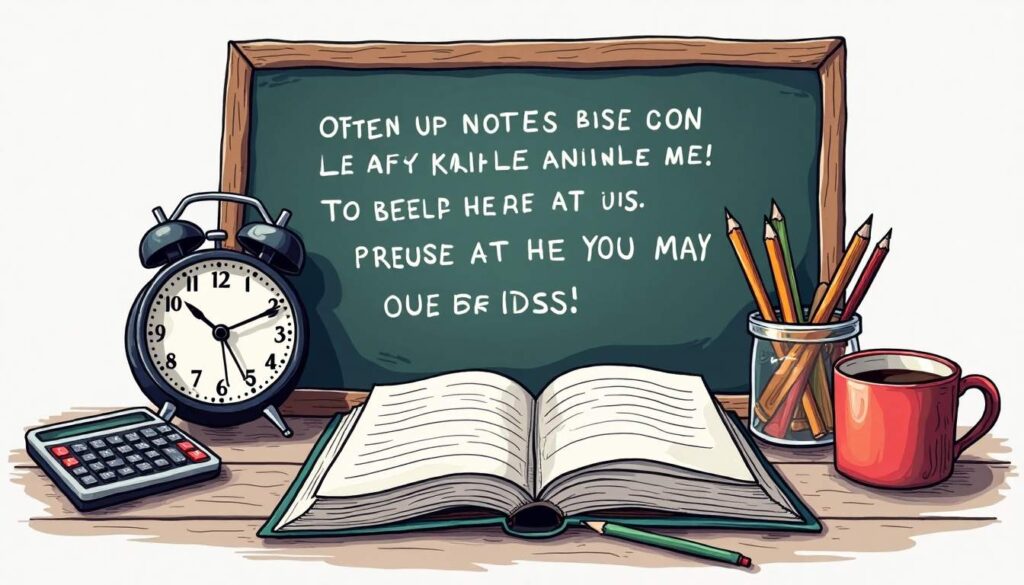 OFTEN UP NOTES BISE CON
LE AFY KAIFLE ANIINLE ME!
TO BEELP HERE AT UIS.
PREUSE AT HE YOU MAY
OUE BE IDSS!
12
11
1
10
2
9
3
8
4
7
5
6